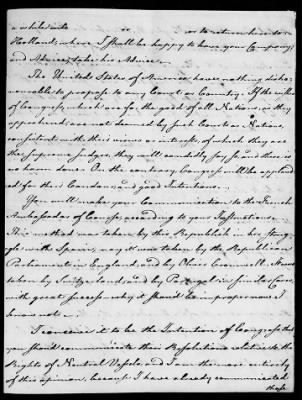 a while into or to return here to
Holland, where I shall be happy to have your Company
and Advice, take his Advice.
The United States of America have nothing disho-
nourable to propose to any Court or Country. If the wishes
of Congress, which are for the good of all Nations, as they
apprehend, are not deemed by such Courts or Nations,
consistent with their views or interests, of which they are
the supreme Judges, they will candidly say so and there is
no harm done. On the contrary, Congress will be applaud
ed for their Candour and good Intentions.
You will make your Communication to the French
Ambassador of Course, according to your Instructions.
This method was taken by this Republick in her strug-
gle with Spain, nay it was taken by the Republican
Parliament in England, and by Oliver Cromwell. It was
taken by Switzerland and by Portugal in similar Cases,
with great success. why it should be improper now, I
know not.
I conceive it to be the Intention of Congress that
you should communicate their Resolutions relative to the
Rights of Neutral Vessels, and I am the more entirely
of this opinion, because I have already communicated
those